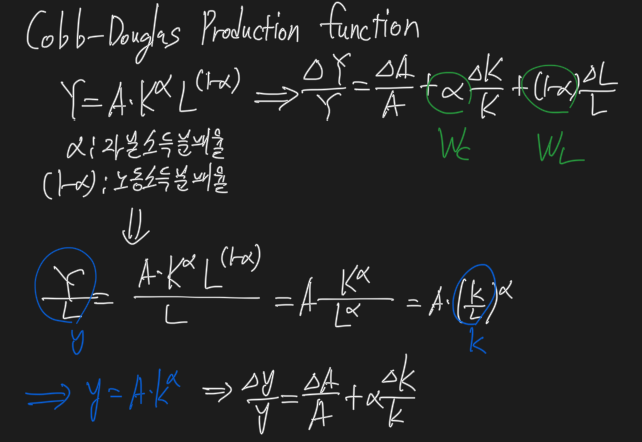 Cobb-Douglas Production function
Y = A·K^α L^(1-α) ⟹ ΔY/Y = ΔA/A + α ΔK/K + (1-α) ΔL/L
α : 자본소득분배율
W_C W_L
(1-α) : 노동소득분배율
⇓
Y/L = A·K^α L^(1-α) / L = A K^α/L^α = A·(K/L)^α
y k
⟹ y = A·k^α ⟹ Δy/y = ΔA/A + α Δk/k